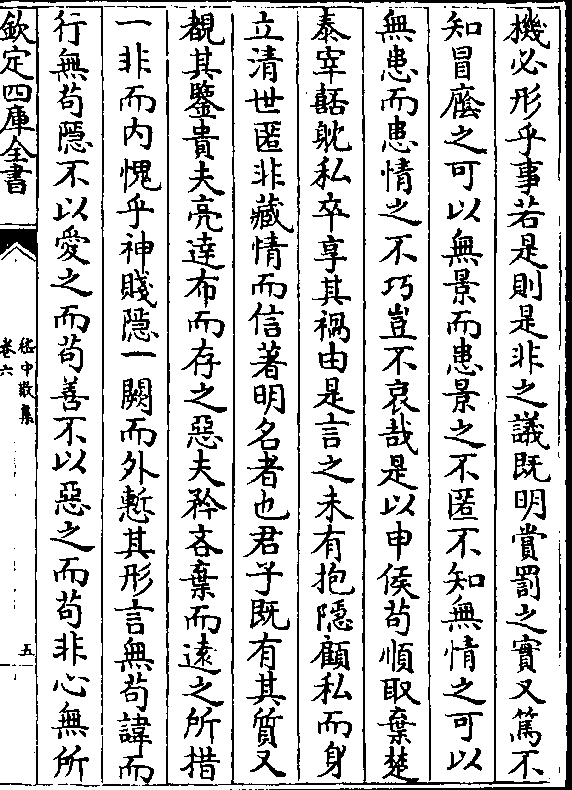 機必形乎事若是則是非之議既明賞罰之實又篤不
知冒廕之可以無景而患景之不匿不知無情之可以
無患而患情之不巧豈不哀哉是以申侯苟順取棄楚
泰宰嚭耽私卒享其禍由是言之未有抱隠顧私而身
立清世匿非藏情而信著明名者也君子既有其質又
覩其鑒貴夫亮達布而存之惡夫矜吝棄而逺之所措
一非而内愧乎神賤隠一闕而外慙其形言無苟諱而
行無苟隠不以愛之而苟善不以惡之而苟非心無所
欽定四庫全書
嵇中散集
卷六
五